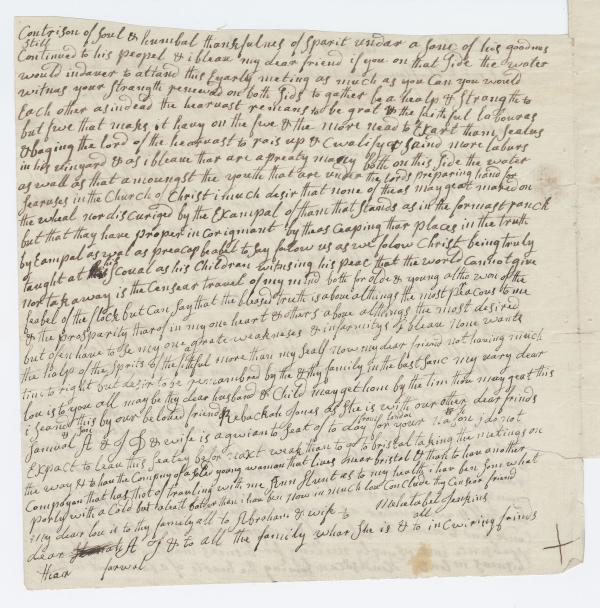 Contrison of Soul & humbal thankfulnes of Sparit undar a Sonc of his goodnes
Still
Continued to his peopel & i bleau my dear friend if you on that Side the water
would indaver to attand this Eyarly meting as much as you Can you would
witnes your Strangth renewed on both Sids to gather be a healp & Strangth to
Each other as indead the hearvast remans to be grat & the faithful labouras
but few that maks it havy on the few & the more nead to Exart tham Sealvs
& baging the lord of the hearvast to rais up & Cwalify & Saind more labors
in his vinyard & as i bleaue thar are a preaty many both on this Side the water
as wall as that amoungst the youth that are undar the lords preparing hand for
Searuses in the Church of Christ i much desir that none of theas may geat mared on
the wheal nor discuriged by the Exampal of tham that Stands as in the formast ranck
but that thay have proper in Corigmant by theas Ceaping thar places in the truth
by Eampal as wal as preacap beabel to Sey folow us as we folow Christ being truly
taught at his Scoual as his Children witnsing his peac that the world Cannot give
nor tak away is the Censear travel of my mind both for olde & young altho won of the
feabel of the flock but Can Say that the blesed truth is above al things the most preacous to me
& the prosparity tharof in my one heart & othars above al things the most desired
but ofen have to Se my one grate weaknes & infarmitys & bleau none wants
the healp of the Sprits of the fithful more than my Sealf now my dear friend not having much
time to right but desir to be remembred by the & thy family in the bast Sanc my vary dear
love is to you all may be thy dear husband & Child may get hom by the tim thou may geat this
i Seand this by our beloved friend Rebackah Jones as She is with our other dear frinds
& Jons
Samual & G D & wife is aqwian to Seat of to day for your nason i do not
through london & to
Expact to leau this Seatey before naxt weak than to go to bristol taking the metings on
the way & to have the Company of a Solid young woman that lives near bristol & thar to have another
Companyan that has hot of traveling with me Ann Hunt as to my health i har ben Som what
porly with a Cold but a leatel battar than i have ben now in much love Conclude thy Cinsear friend
Mehatabel Jenkins
my dear love is to thy family all to Abraham & wife to all
dear A J & to all the family whar She is & to inCwiring frinds
thear farwal